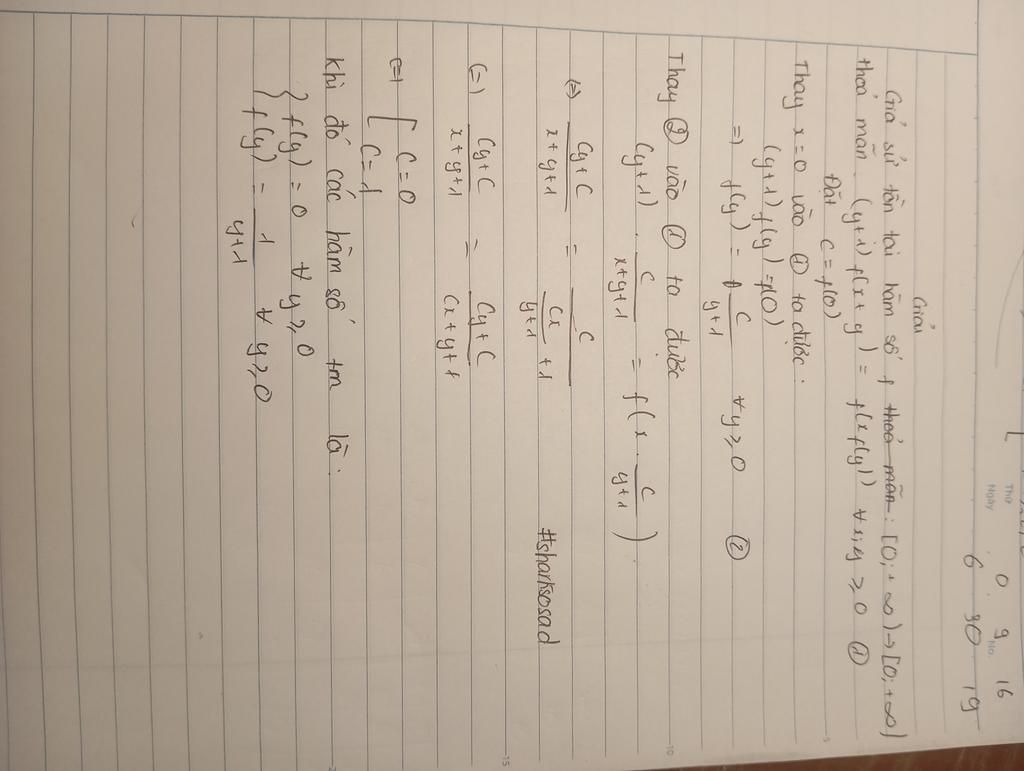 Thứ
Ngày
No.
0 9 16
6 30 19
Giải
Giả sử tồn tại hàm số f thoả mãn: [0; +∞) → [0; +∞)
thoả mãn (y+1) f(x+y) = f(x f(y)) ∀x;y ≥ 0 ①
Đặt C = f(0)
Thay x=0 vào ① ta được:
(y+1) f(y) = f(0)
=) f(y) = C/(y+1) ∀y ≥ 0 ②
Thay ② vào ① ta được
(y+1) . C/(x+y+1) = f(x . C/(y+1))
(=) (Cy+C)/(x+y+1) = C/(Cx/(y+1) + 1)
#sharksosad
(=) (Cy+C)/(x+y+1) = (Cy+C)/(Cx+y+1)
(=) [ C=0
C=1
Khi đó các hàm số tm là:
{ f(y) = 0 ∀y ≥ 0
f(y) = 1/(y+1) ∀y ≥ 0
5
10
15